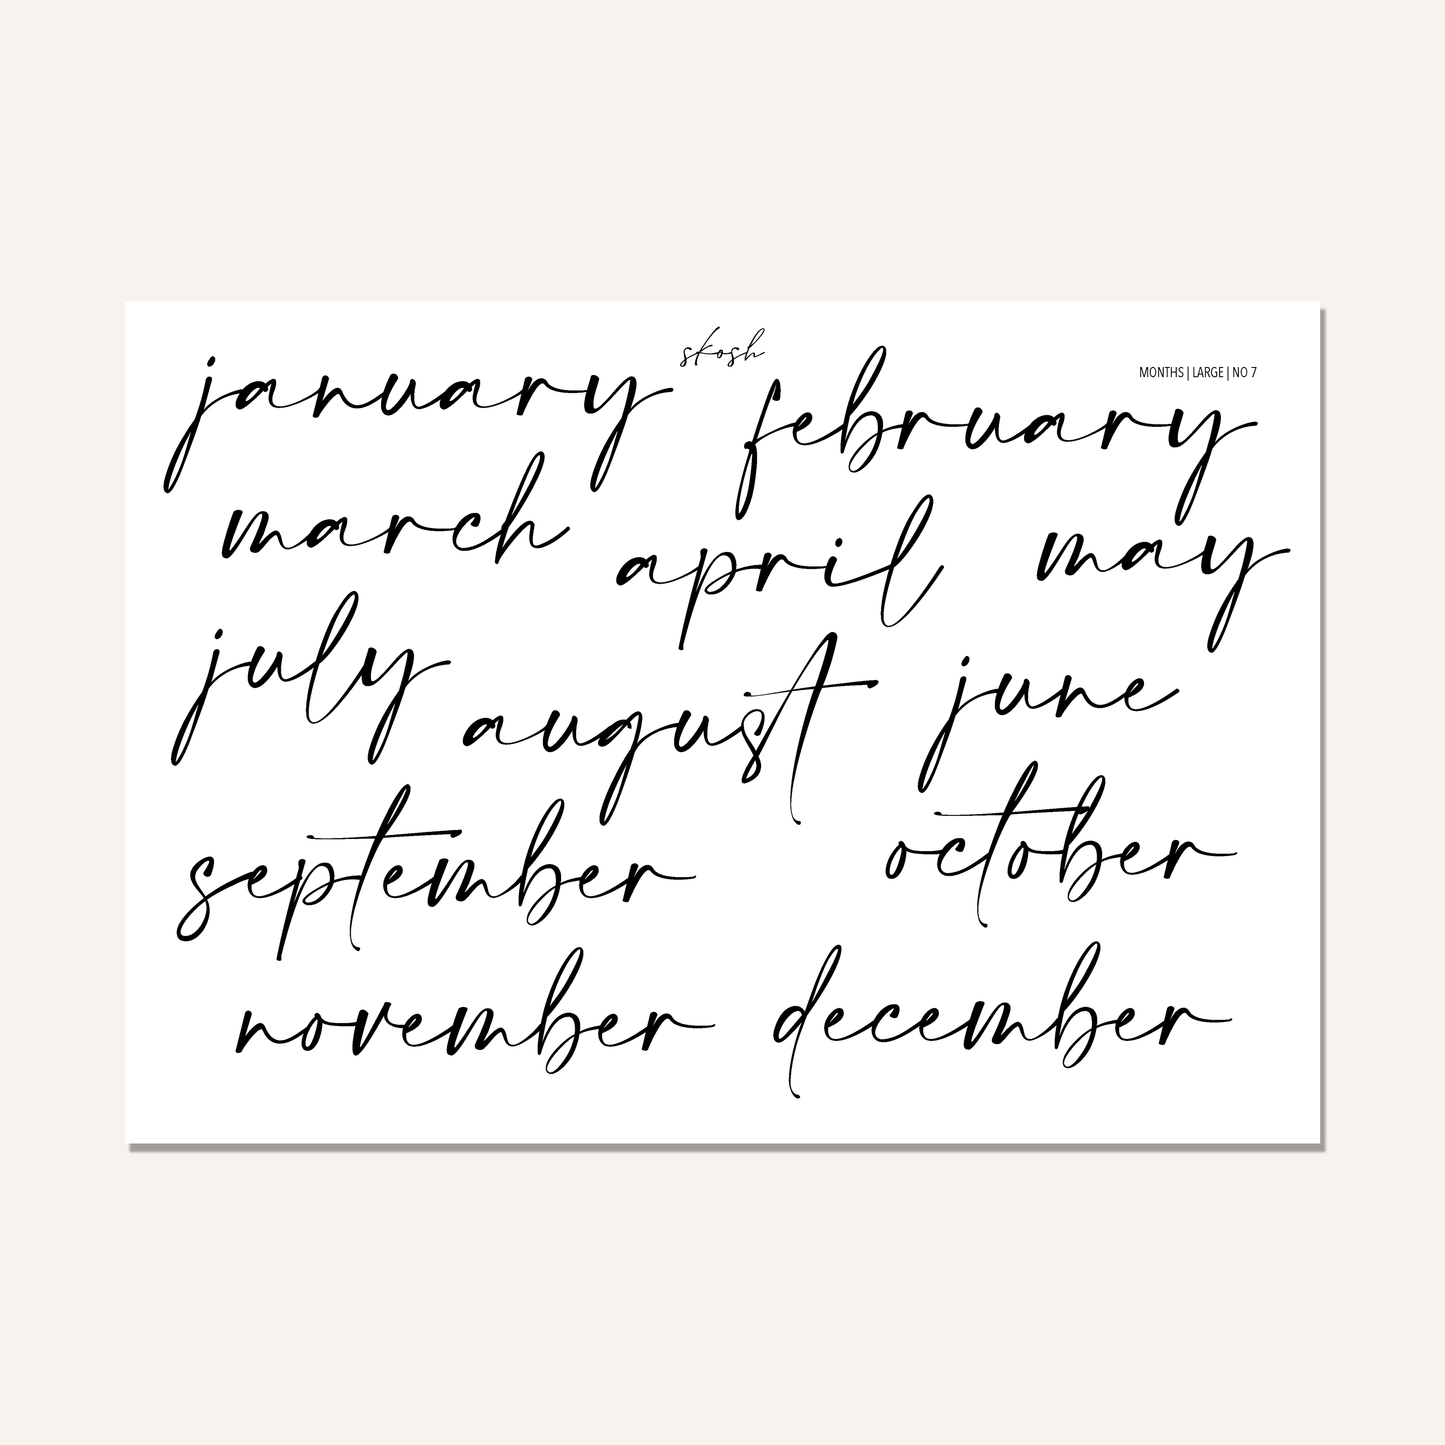 skosh
MONTHS | LARGE | NO 7
january february
march april may
july august june
september october
november december